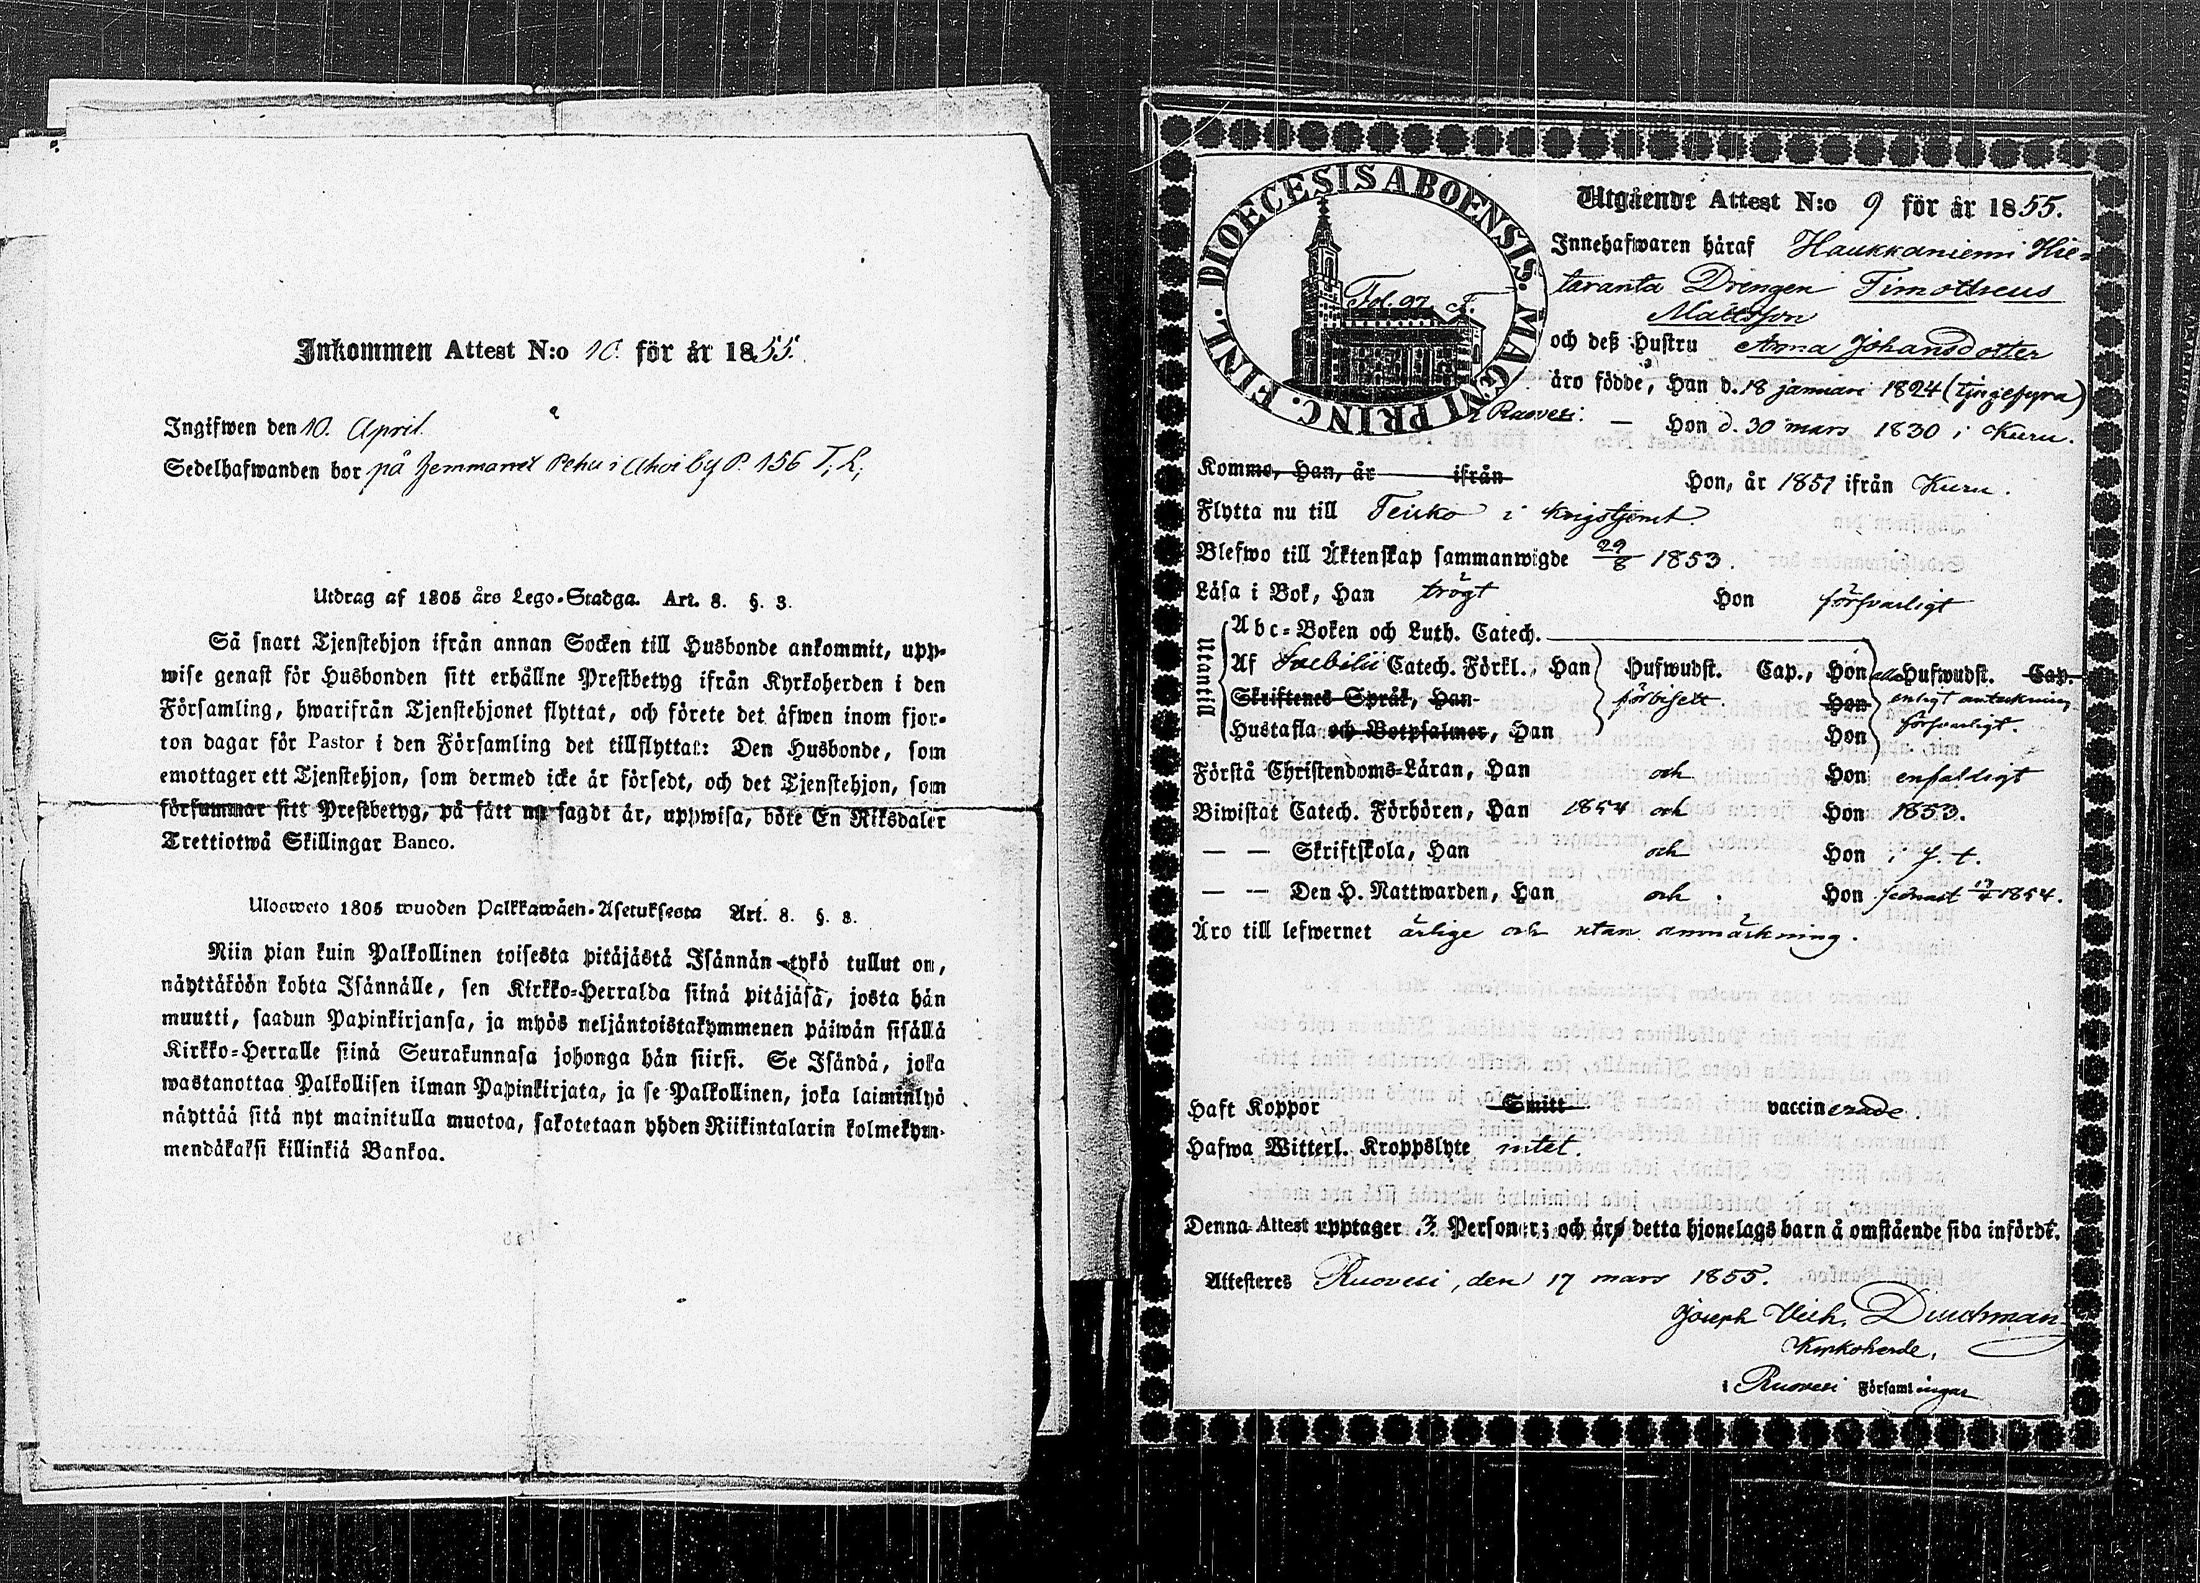 Inkommen Attest N:o 10. för år 1855.
Ingifwen den 10. April.
Sedelhafwanden bor på Hemmanet Pehu i Ahoi by P. 156 T, L,
Utdrag af 1805 års Lego-Stadga. Art. 8. §. 3.
Så snart Tjenstehjon ifrån annan Socken till Husbonde ankommit, upp-
wise genast för Husbonden sitt erhållne Prestbetyg ifrån Kyrkoherden i den
Församling, hwarifrån Tjenstehjonet flyttat, och förete det äfwen inom fjor-
ton dagar för Pastor i den Församling det tillflyttat: Den Husbonde, som
emottager ett Tjenstehjon, som dermed icke är försedt, och det Tjenstehjon, som
försummar sitt Prestbetyg, på sätt nu sagdt är, uppwisa, böte En Riksdaler
Trettiotwå Skillingar Banco.
Ulosweto 1805 wuoden Palkkawäen-Asetuksesta Art. 8. §. 3.
Niin pian kuin Palkollinen toisesta pitäjästä Isännän tykö tullut on,
näyttäköön kohta Isännälle, sen Kirkko-Herralda siinä pitäjäsä, josta hän
muutti, saadun Papinkirjansa, ja myös neljäntoistakymmenen päiwän sisällä
Kirkko-Herralle siinä Seurakunnasa johonga hän siirsi. Se Isändä, joka
wastanottaa Palkollisen ilman Papinkirjata, ja se Palkollinen, joka laiminlyö
näyttää sitä nyt mainitulla muotoa, sakotetaan yhden Riikintalarin kolmekym-
mendäkaksi killinkiä Bankoa.
DIOECESIS ABOENSIS. MAGNI PRINC. FINL.
Fol. 97. F.
Utgående Attest N:o 9 för år 1855.
Innehafwaren häraf Haukkaniemi Hie-
taranta Drengen Timotheus
Mattsson
och deß Hustru Anna Johansdotter
äro födde, Han d. 18 januari 1824 (tjugefyra)
i Ruovesi: — Hon d. 30 mars 1830 i Kuru.
Komme, Han, år ifrån Hon, år 1851 ifrån Kuru.
Flytta nu till Teisko i krigstjenst
Blefwo till Äktenskap sammanwigde 29/8 1853.
Läsa i Bok, Han trögt Hon försvarligt
Utantill
Abc-Boken och Luth. Catech.
Af Svebilii Catech. Förkl., Han Hufwudst. Cap., Hon alla Hufwudst. Cap.
Skriftenes Språk, Han förbisett. Hon enligt anteckning
Hustafla och Botpsalmer, Han Hon försvarligt.
Förstå Christendoms-Läran, Han och Hon enfaldigt
Biwistat Catech. Förhören, Han 1854 och Hon 1853.
— — Skriftskola, Han och Hon i f. t.
— — Den H. Nattwarden, Han och Hon senast 1854.
Äro till lefwernet ärlige och utan anmärkning.
Haft Koppor Smitt vaccinerade.
Hafwa Witterl. Kroppslyte intet.
Denna Attest upptager 3 Personer; och är detta hjonelags barn å omstående sida infördt.
Attesteres Ruovesi, den 17 mars 1855.
Joseph Wilh. Durchman
Kyrkoherde,
i Ruovesi Församlingar